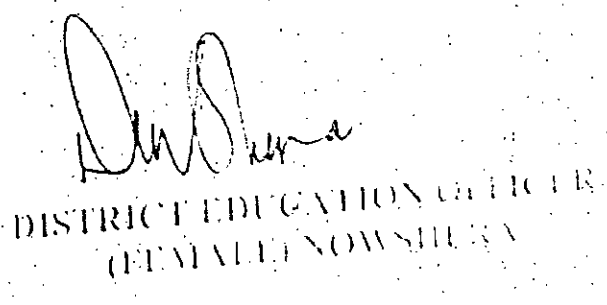 DISTRICT EDUCATION OFFICER
(FEMALE) NOWSHERA